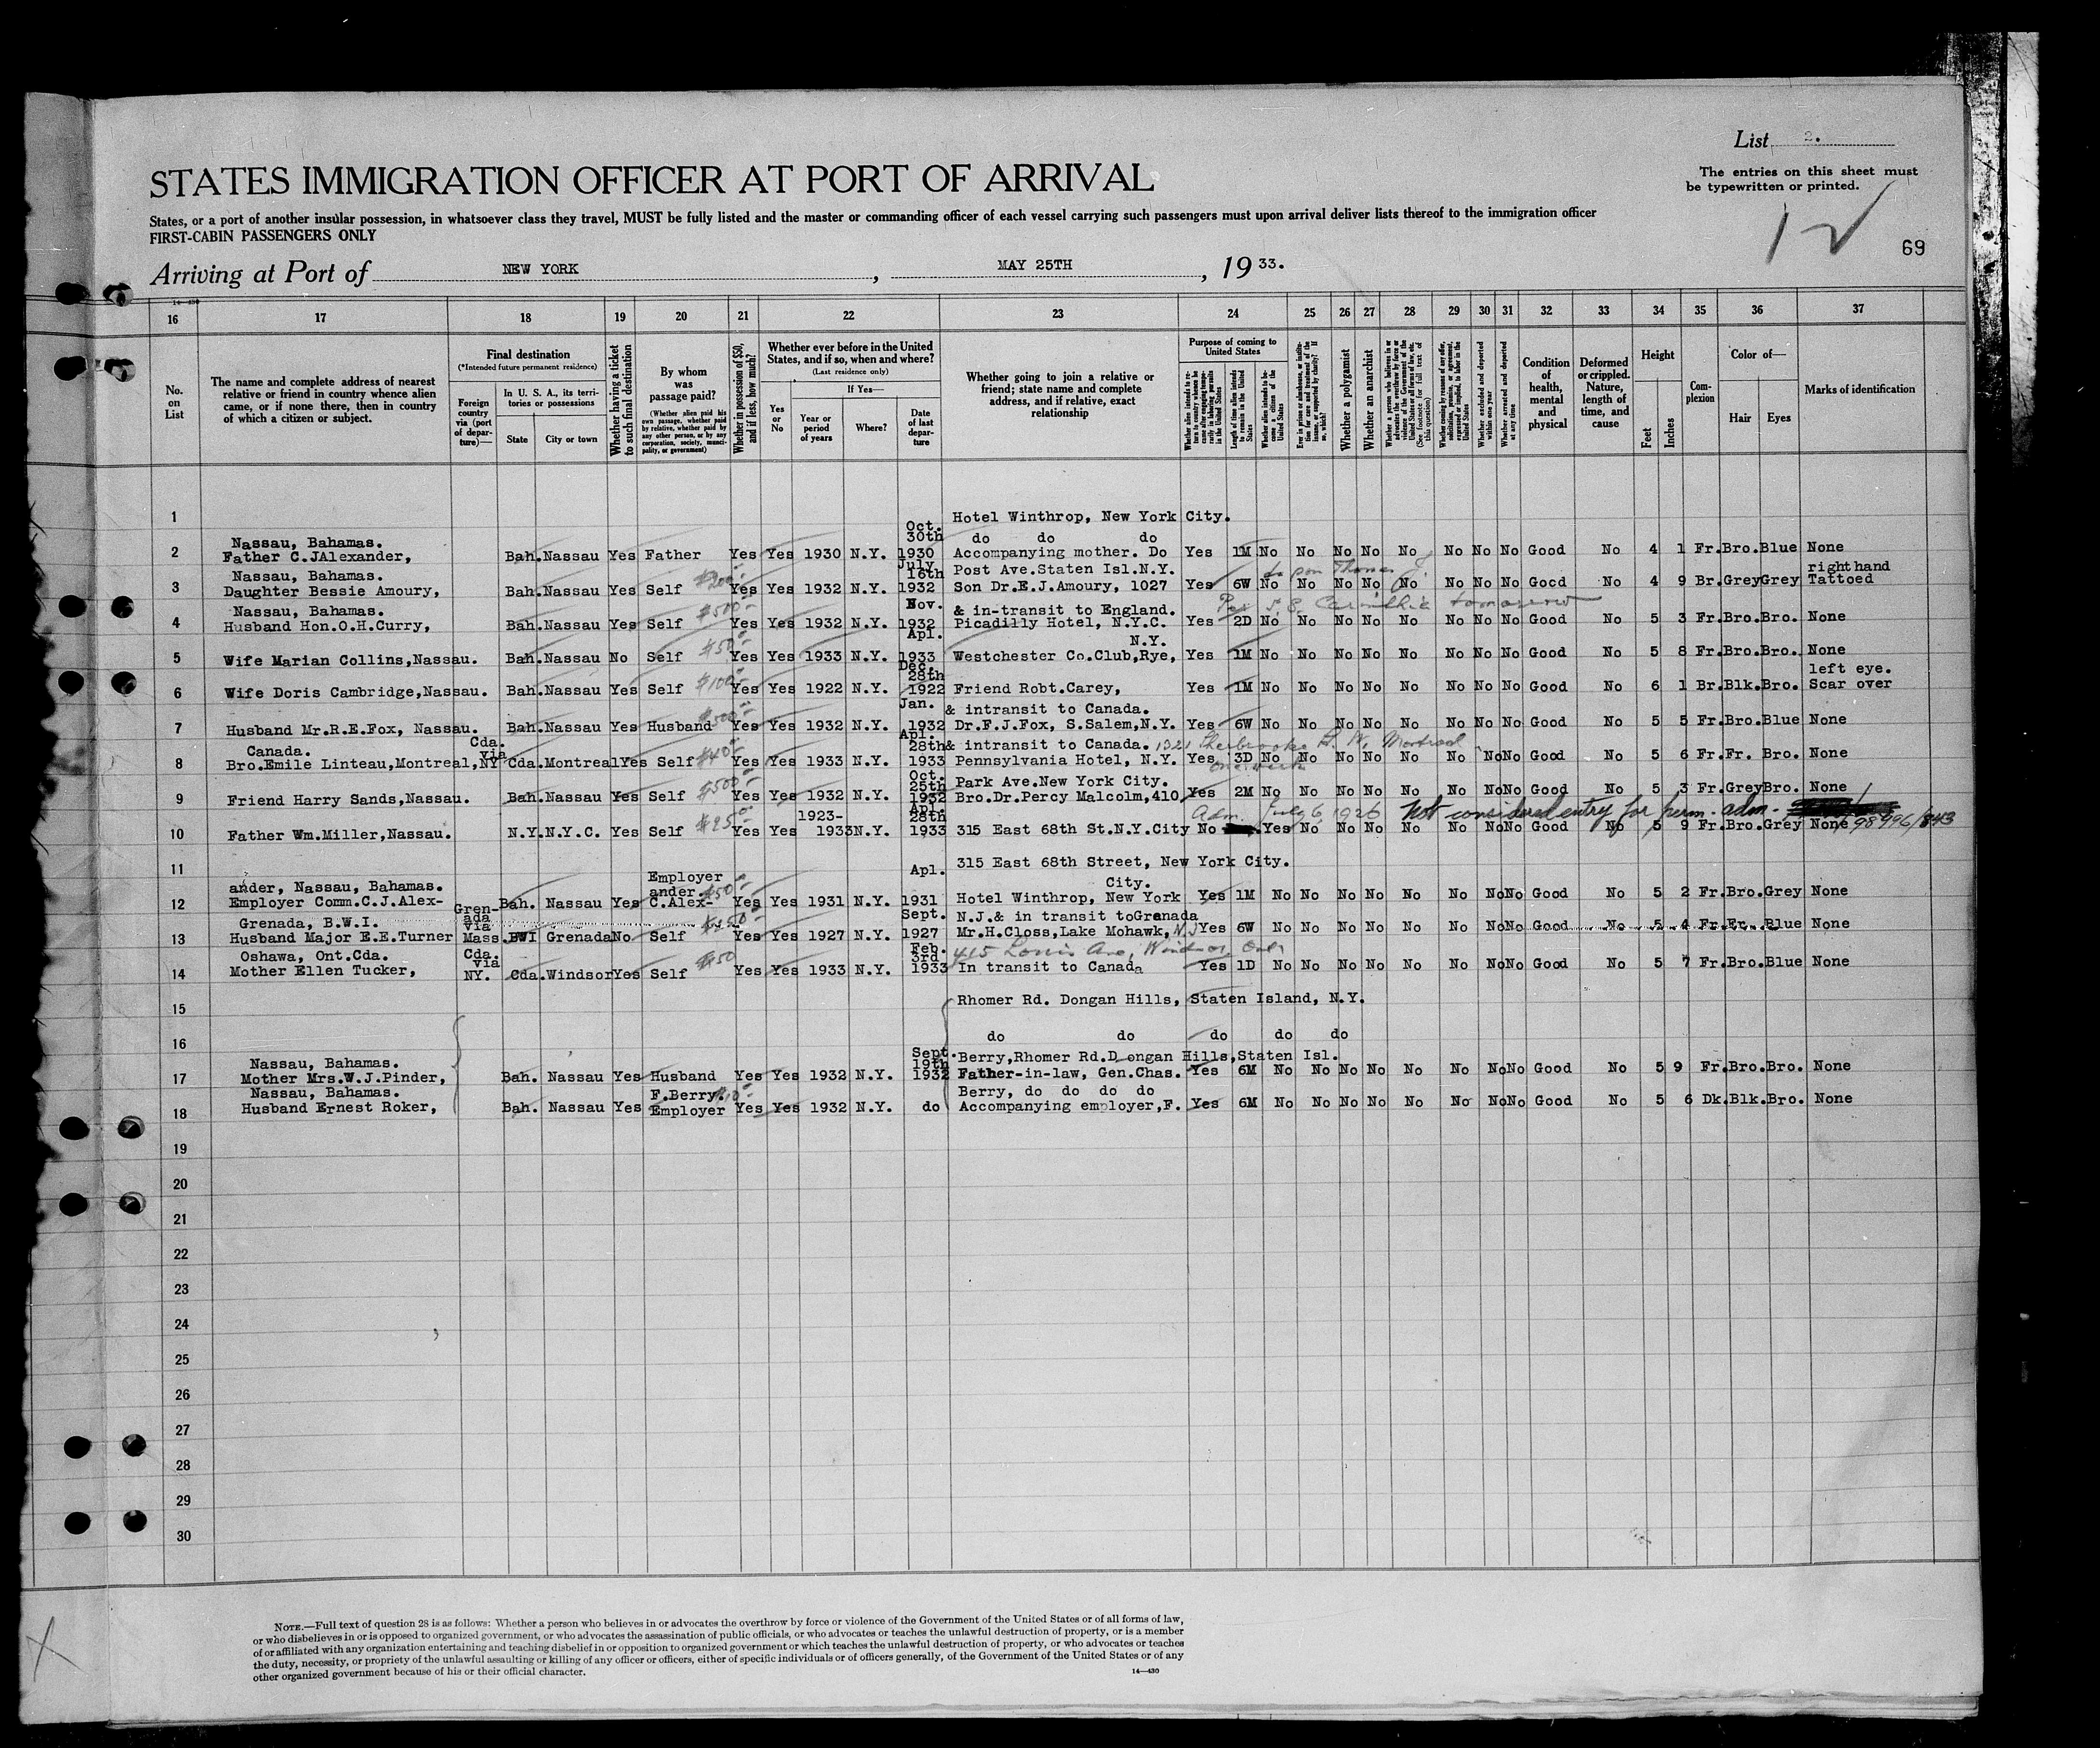 List 2.
The entries on this sheet must
be typewritten or printed.
STATES IMMIGRATION OFFICER AT PORT OF ARRIVAL
69
States, or a port of another insular possession, in whatsoever class they travel, MUST be fully listed and the master or commanding officer of each vessel carrying such passengers must upon arrival deliver lists thereof to the immigration officer
FIRST-CABIN PASSENGERS ONLY
Arriving at Port of NEW YORK, MAY 25TH, 1933.
14—430
16 17 18 19 20 21 22 23 24 25 26 27 28 29 30 31 32 33 34 35 36 37
No. on List
The name and complete address of nearest relative or friend in country whence alien came, or if none there, then in country of which a citizen or subject.
Final destination
(*Intended future permanent residence)
Foreign country via (port of departure)—
In U. S. A., its territories or possessions
State
City or town
Whether having a ticket to such final destination
By whom was passage paid?
(Whether alien paid his own passage, whether paid by relative, whether paid by any other person, or by any corporation, society, municipality, or government)
Whether in possession of $50, and if less, how much?
Whether ever before in the United States, and if so, when and where?
(Last residence only)
Yes or No
If Yes—
Year or period of years
Where?
Date of last departure
Whether going to join a relative or friend; state name and complete address, and if relative, exact relationship
Purpose of coming to United States
Length of time alien intends to remain in the United States
Whether a polygamist
Whether an anarchist
Whether excluded and deported within one year
Whether arrested and deported at any time
Condition of health, mental and physical
Deformed or crippled. Nature, length of time, and cause
Height
Feet
Inches
Complexion
Color of—
Hair
Eyes
Marks of identification
1 Hotel Winthrop, New York City.
Nassau, Bahamas. Oct. 30th do do do
2 Father C.JAlexander, Bah.Nassau Yes Father Yes Yes 1930 N.Y. 1930 Accompanying mother. Do Yes 1M No No No No No No No No Good No 4 1 Fr.Bro.Blue None
Nassau, Bahamas. $200 July 16th Post Ave.Staten Isl.N.Y. right hand
3 Daughter Bessie Amoury, Bah.Nassau Yes Self Yes Yes 1932 N.Y. 1932 Son Dr.E.J.Amoury, 1027 Yes 6W No No No No No No No No Good No 4 9 Br.GreyGrey Tattoed
Nassau, Bahamas. $500 Nov. & in-transit to England. Per S.S. Carinthia tomorrow
4 Husband Hon.O.H.Curry, Bah.Nassau Yes Self Yes Yes 1932 N.Y. 1932 Picadilly Hotel, N.Y.C. Yes 2D No No No No No No No No Good No 5 3 Fr.Bro.Bro. None
$50 Apl. N.Y.
5 Wife Marian Collins,Nassau. Bah.Nassau No Self Yes Yes 1933 N.Y. 1933 Westchester Co.Club,Rye, Yes 1M No No No No No No No No Good No 5 8 Fr.Bro.Bro. None
$100 Dec. 28th left eye.
6 Wife Doris Cambridge,Nassau. Bah.Nassau Yes Self Yes Yes 1922 N.Y. 1922 Friend Robt.Carey, Yes 1M No No No No No No No No Good No 6 1 Br.Blk.Bro. Scar over
$500 Jan. & intransit to Canada.
7 Husband Mr.R.E.Fox, Nassau. Bah.Nassau Yes Husband Yes Yes 1932 N.Y. 1932 Dr.F.J.Fox, S.Salem,N.Y. Yes 6W No No No No No No No No Good No 5 5 Fr.Bro.Blue None
Canada. Cda. via $40 Apl. 28th & intransit to Canada. 1321 Sherbrooke St. W. Montreal
8 Bro.Emile Linteau,Montreal, NY Cda.Montreal Yes Self Yes Yes 1933 N.Y. 1933 Pennsylvania Hotel, N.Y. Yes 3D No No No No No No No Good No 5 6 Fr.Fr. Bro. None
$500 Oct. 25th Park Ave.New York City. one week
9 Friend Harry Sands,Nassau. Bah.Nassau Yes Self Yes Yes 1932 N.Y. 1932 Bro.Dr.Percy Malcolm,410 Yes 2M No No No No No No NoNo Good No 5 3 Fr.GreyBro. None
$25 1923- Apl. 28th Adm. July 6, 1926 Not considered entry for perm. adm.
10 Father Wm.Miller,Nassau. N.Y.N.Y.C. Yes Self Yes Yes 1933N.Y. 1933 315 East 68th St.N.Y.City No Yes No No No No No NoNo Good No 5 9 Fr.Bro.Grey None 98996/843
11 Apl. 315 East 68th Street, New York City.
ander, Nassau, Bahamas. Employer ander. $50 City.
12 Employer Comm.C.J.Alex- Bah. Nassau Yes C.Alex- Yes Yes 1931 N.Y. 1931 Hotel Winthrop, New York Yes 1M No No No No No No NoNo Good No 5 2 Fr.Bro.Grey None
Grenada, B.W.I. Gren-ada via $250 Sept. N.J.& in transit toGrenada
13 Husband Major E.E.Turner Mass.BWI Grenada No Self Yes Yes 1927 N.Y. 1927 Mr.H.Closs,Lake Mohawk, N.J Yes 6W No No No No No No NoNo Good No 5 4 Fr. Blue None
Oshawa, Ont.Cda. Cda. via $50 Feb. 3rd 415 Louis Ave, Windsor, Ont
14 Mother Ellen Tucker, NY. Cda.Windsor Yes Self Yes Yes 1933 N.Y. 1933 In transit to Canada Yes 1D No No No No No No NoNo Good No 5 7 Fr.Bro.Blue None
15 Rhomer Rd. Dongan Hills, Staten Island, N.Y.
16 do do do do do
Nassau, Bahamas. Sept. 19th Berry,Rhomer Rd.Dongan Hills,Staten Isl.
17 Mother Mrs.W.J.Pinder, Bah. Nassau Yes Husband Yes Yes 1932 N.Y. 1932 Father-in-law, Gen.Chas. Yes 6M No No No No No No NoNo Good No 5 9 Fr.Bro.Bro. None
Nassau, Bahamas. F.Berry. $10 Berry, do do do do
18 Husband Ernest Roker, Bah. Nassau Yes Employer Yes Yes 1932 N.Y. do Accompanying employer,F. Yes 6M No No No No No No NoNo Good No 5 6 Dk.Blk.Bro. None
19
20
21
22
23
24
25
26
27
28
29
30
NOTE.—Full text of question 28 is as follows: Whether a person who believes in or advocates the overthrow by force or violence of the Government of the United States or of all forms of law,
or who disbelieves in or is opposed to organized government, or who advocates the assassination of public officials, or who advocates or teaches the unlawful destruction of property, or is a member
of or affiliated with any organization entertaining and teaching disbelief in or opposition to organized government or which teaches the unlawful destruction of property, or who advocates or teaches
the duty, necessity, or propriety of the unlawful assaulting or killing of any officer or officers, either of specific individuals or of officers generally, of the Government of the United States or of any
other organized government because of his or their official character.
14—430